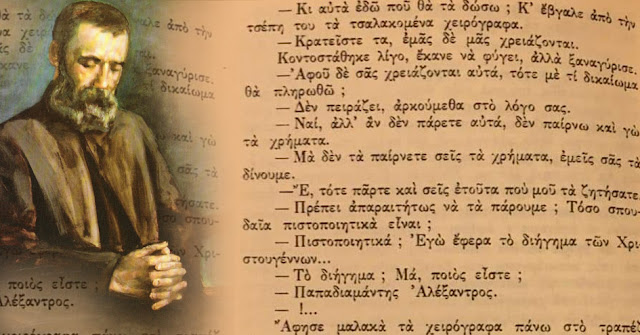 — Κι αὐτὰ ἐδῶ ποῦ θὰ τὰ δώσω ; Κ' ἔβγαλε ἀπὸ τὴν
τσέπη του τὰ τσαλακομένα χειρόγραφα.
— Κρατεῖστε τα, ἐμᾶς δὲ μᾶς χρειάζονται.
Κοντοστάθηκε λίγο, ἔκανε νὰ φύγει, ἀλλὰ ξαναγύρισε.
—Ἀφοῦ δὲ σᾶς χρειάζονται αὐτά, τότε μὲ τί δικαίωμα
θὰ πληρωθῶ ;
— Δὲν πειράζει, ἀρκούμεθα στὸ λόγο σας.
— Ναί, ἀλλ' ἂν δὲν πάρετε αὐτά, δὲν παίρνω καὶ γὼ
τὰ χρήματα.
— Μὰ δὲν τὰ παίρνετε σεῖς τὰ χρήματα, ἐμεῖς σᾶς τὰ
δίνουμε.
—Ἔ, τότε πᾶρτε καὶ σεῖς ἐτοῦτα ποὺ μοῦ τὰ ζητήσατε.
— Πρέπει ἀπαραιτήτως νὰ τὰ πάρουμε ; Τόσο σπου-
δαῖα πιστοποιητικὰ εἶναι ;
— Πιστοποιητικά ; Ἐγὼ ἔφερα τὸ διήγημα τῶν Χρι-
στουγέννων...
— Τὸ διήγημα ; Μά, ποιὸς εἶστε ;
— Παπαδιαμάντης Ἀλέξαντρος.
— !...
Ἄφησε μαλακὰ τὰ χειρόγραφα πάνω στὸ τραπέ
ποιὸς εἶστε ;
Ἀλέξαντρος.